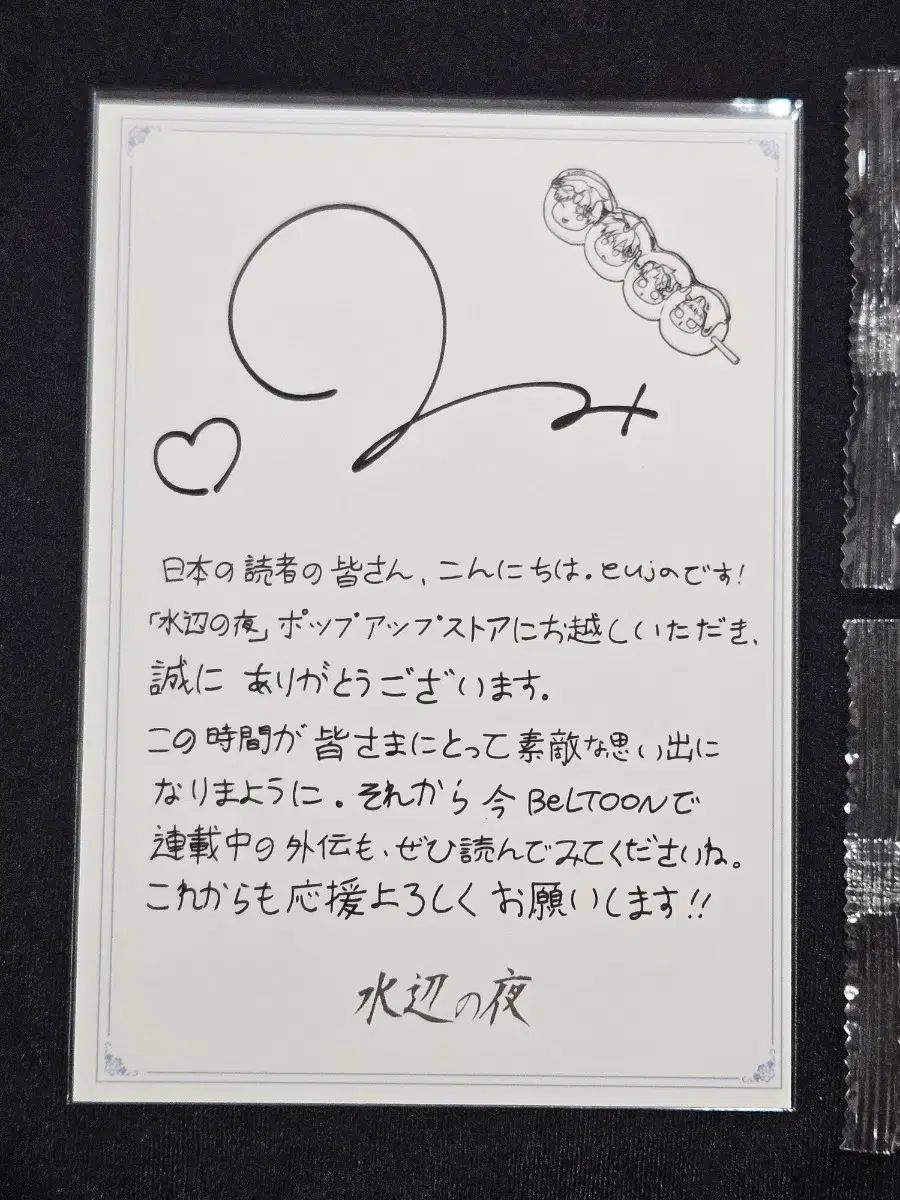 日本の読者の皆さん、こんにちは。eujaです!
「水辺の夜」ポップアップストアにお越しいただき、
誠に ありがとうございます。
この時間が 皆さまにとって 素敵な思い出に
なりまように。それから 今 BeLTOONで
連載中の外伝も、ぜひ読んでみてくださいね。
これからも応援よろしく お願いします!!
水辺の夜